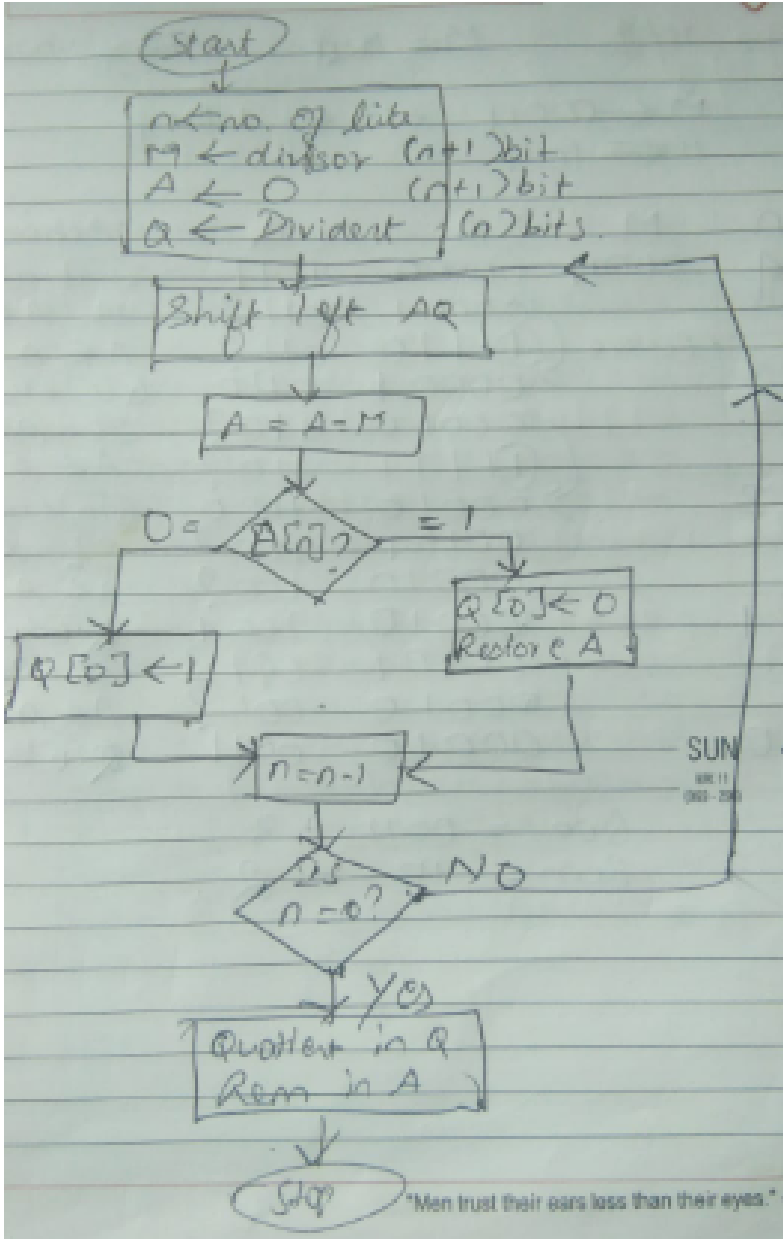 Start
n ← no. of bits
M ← divisor (n+1)bit
A ← 0 (n+1)bit
Q ← Divident (n)bits.
Shift left AQ
A = A - M
0 =
A[n]?
= 1
Q[0] ← 0
Restore A
Q[0] ← 1
n = n-1
SUN
Is
n = 0?
NO
Yes
Quotient in Q
Rem in A
Stop
"Men trust their ears less than their eyes."